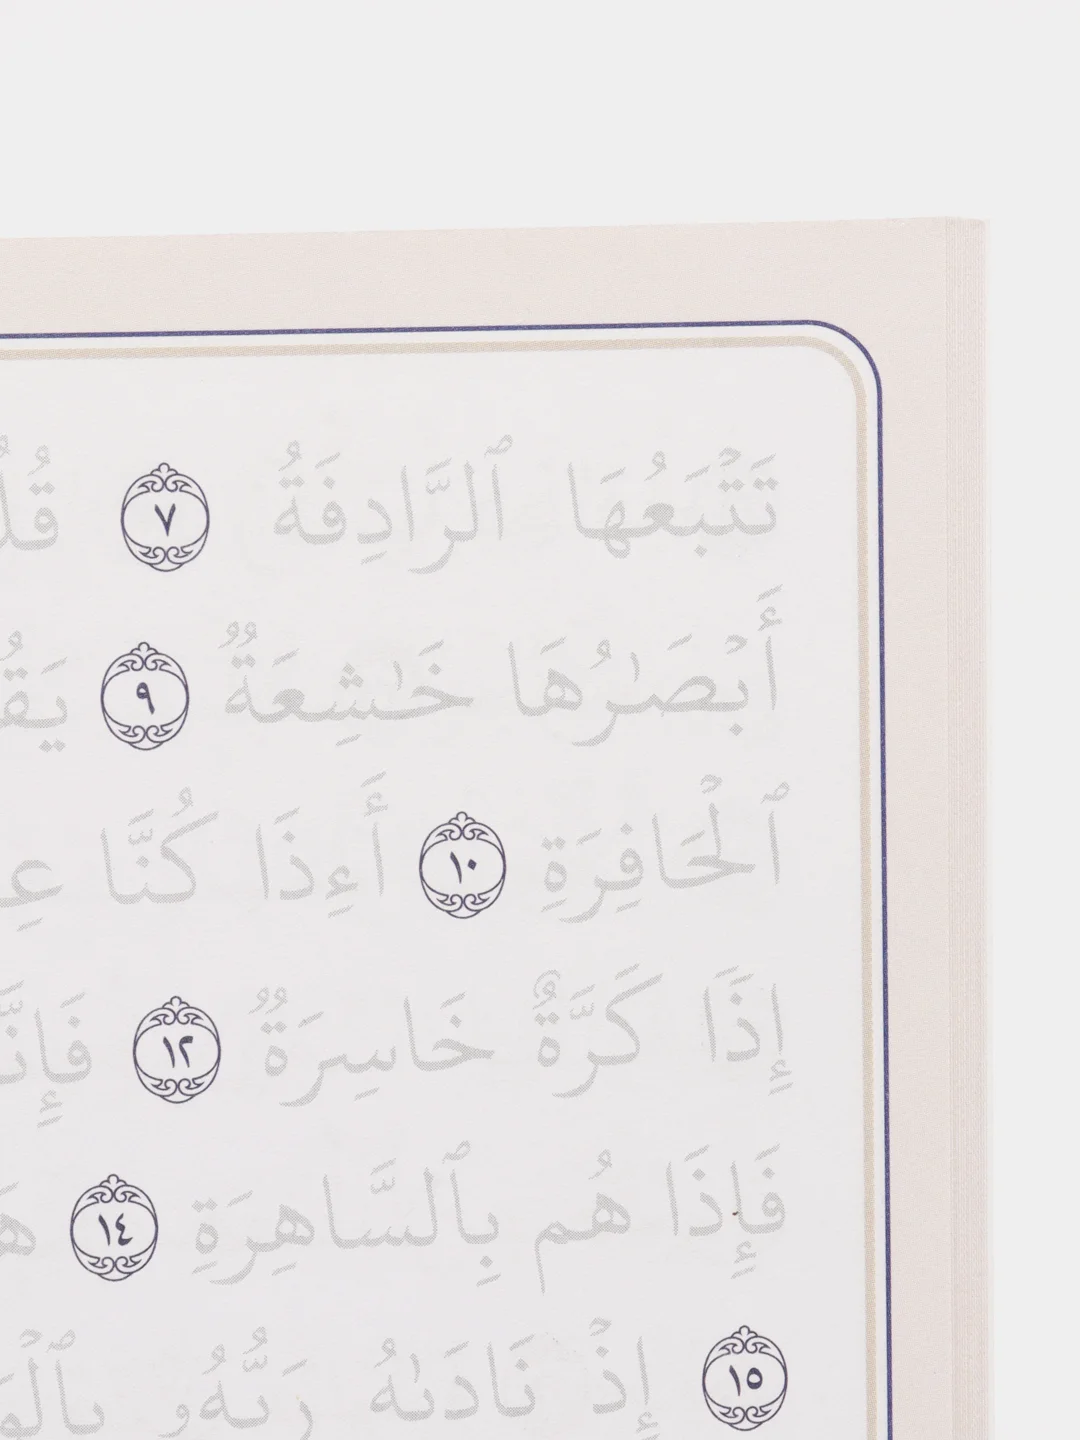 تَتۡبَعُهَا ٱلرَّادِفَةُ ٧
أَبۡصَٰرُهَا خَٰشِعَةٞ ٩
ٱلۡحَافِرَةِ ١٠ أَءِذَا كُنَّا
إِذٗا كَرَّةٌ خَاسِرَةٞ ١٢
فَإِذَا هُم بِٱلسَّاهِرَةِ ١٤
١٥ إِذۡ نَادَىٰهُ رَبُّهُۥ